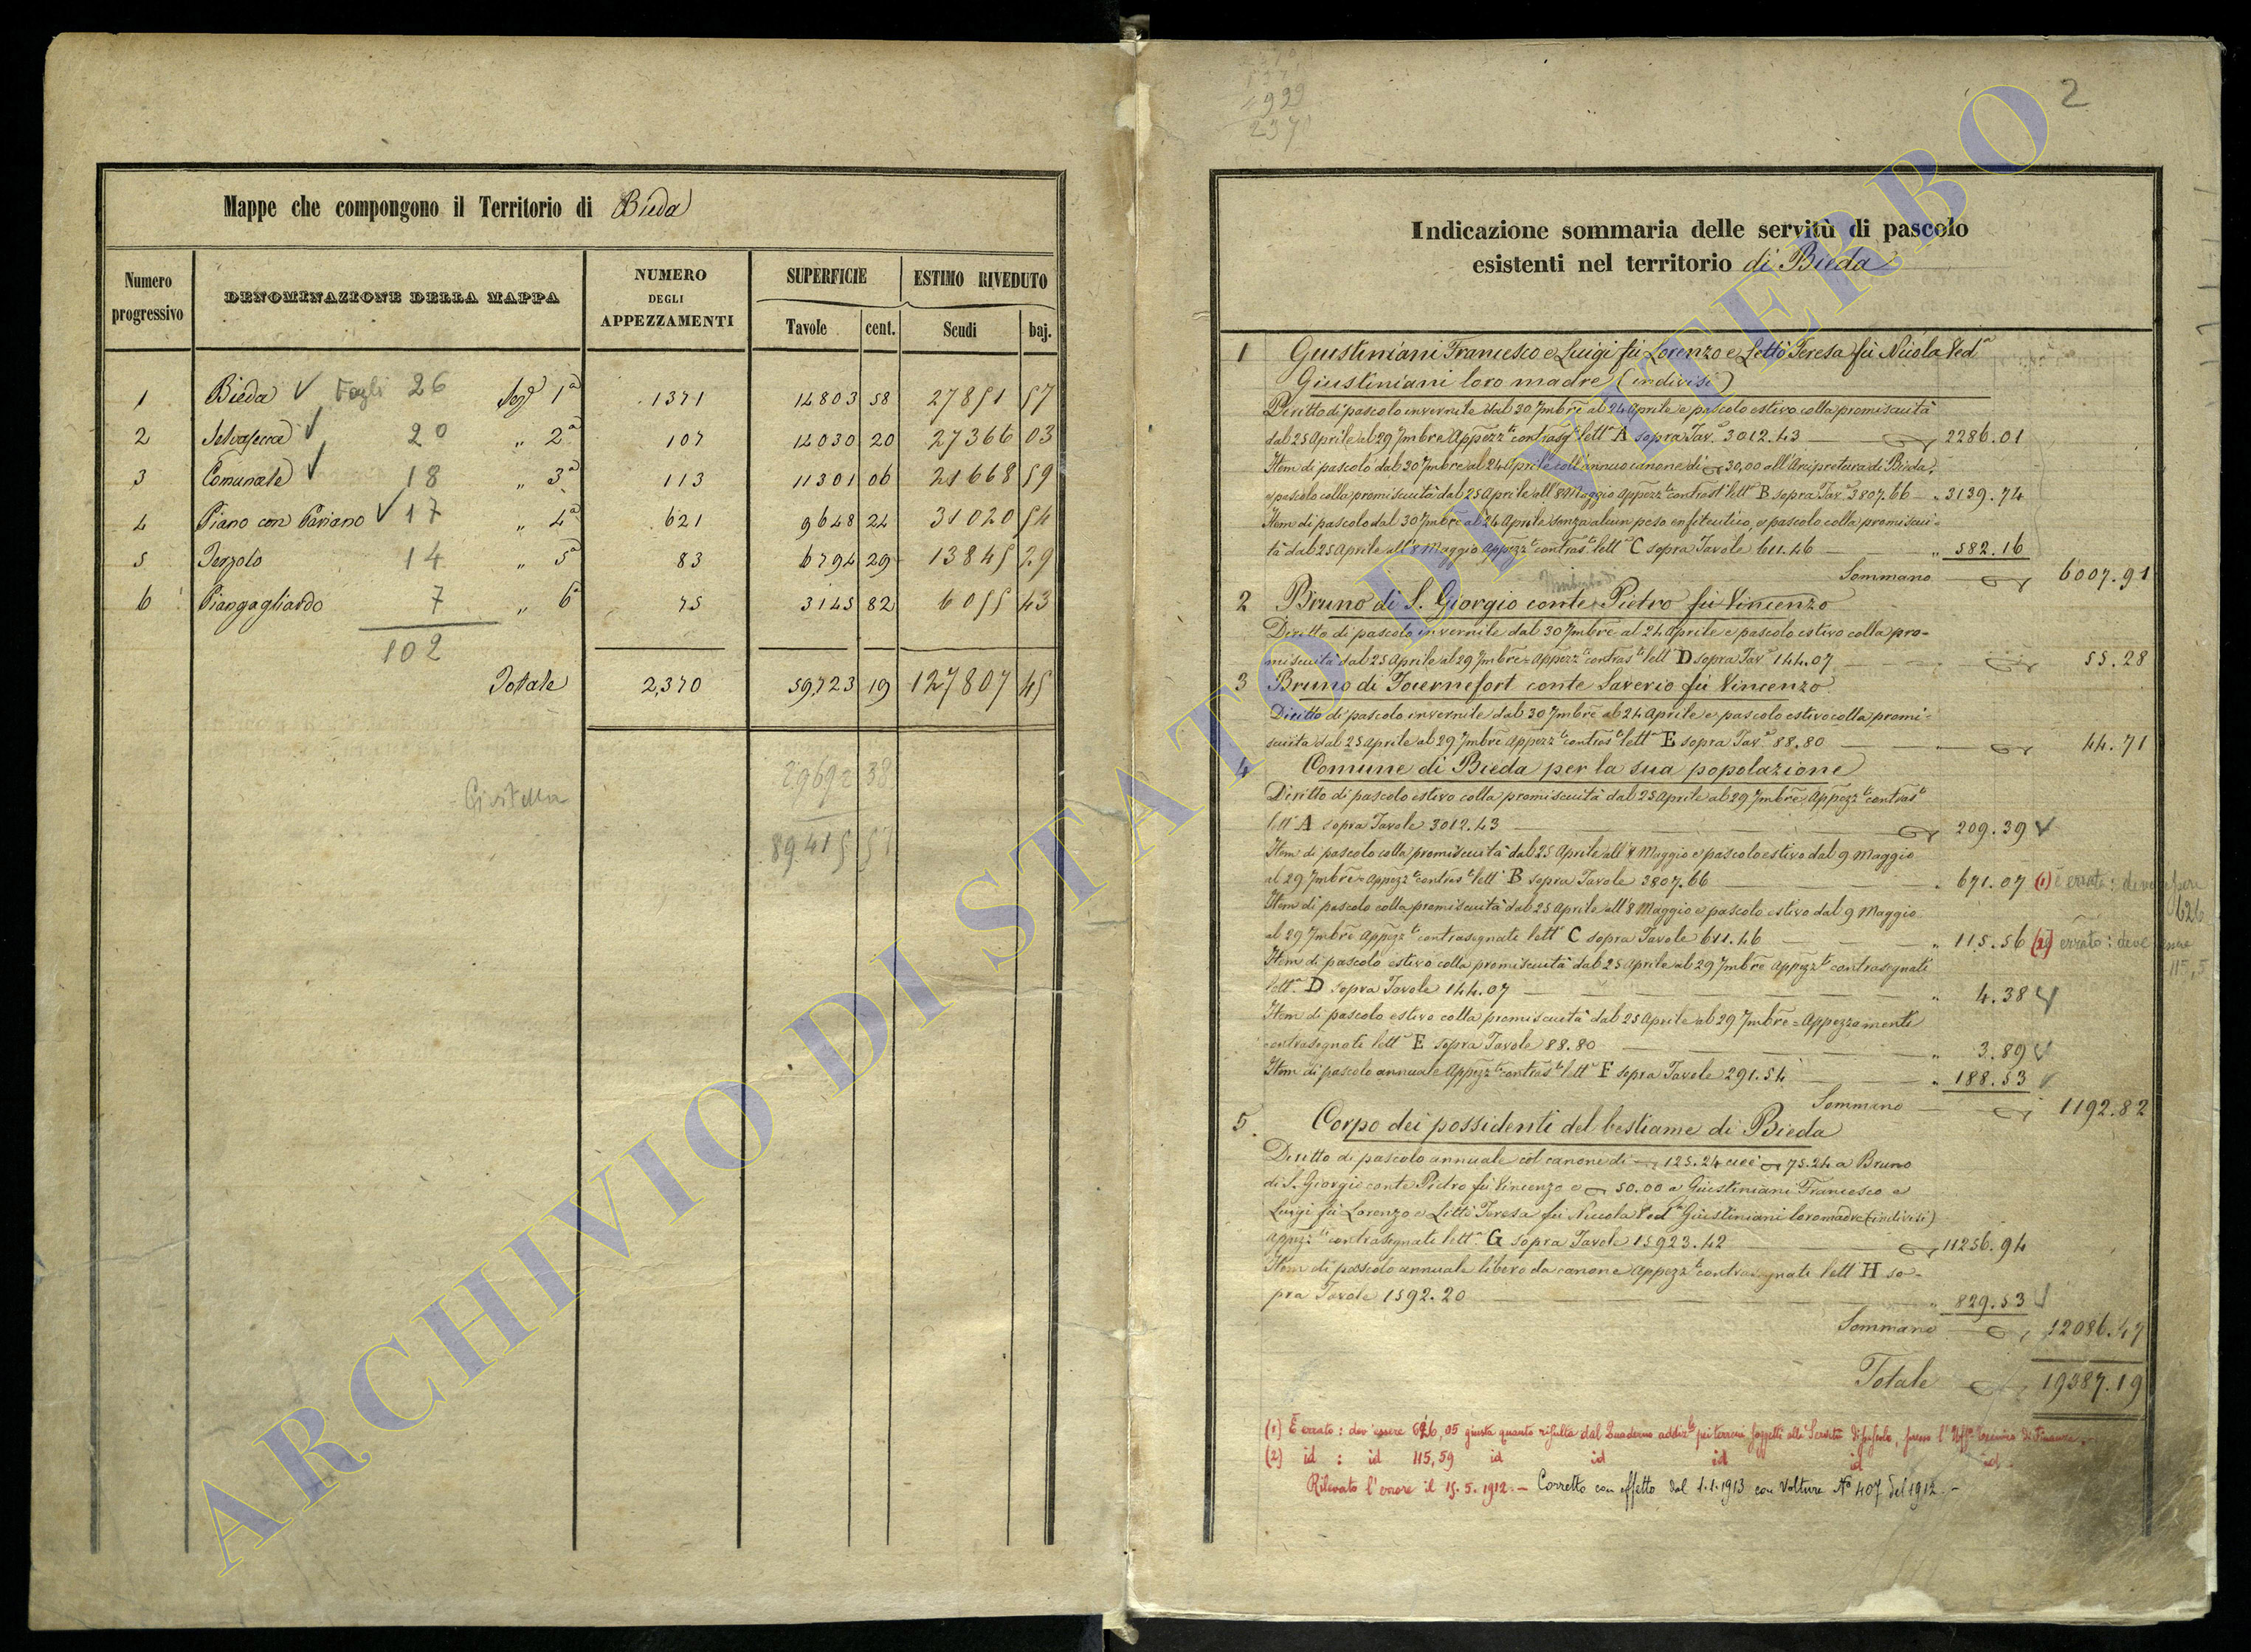 Mappe che compongono il Territorio di Bieda
Numero progressivo
DENOMINAZIONE DELLA MAPPA
NUMERO DEGLI APPEZZAMENTI
SUPERFICIE
ESTIMO RIVEDUTO
Tavole cent. Scudi baj.
1 Bieda Fogli 26 Sez 1ª 1371 14803 58 27851 57
2 Selvasecca 20 " 2ª 107 14030 20 27366 03
3 Comunale 18 " 3ª 113 11301 06 21668 59
4 Piano con Pariano 17 " 4ª 621 9648 24 31020 54
5 Terzolo 14 " 5ª 83 6794 29 13845 29
6 Piangagliardo 7 " 6ª 75 3145 82 6055 43
102
Totale 2,370 59,723 19 127807 45
29692 38
Civitella
89415 57
2
237
Indicazione sommaria delle servitù di pascolo
esistenti nel territorio di Bieda
1 Giustiniani Francesco e Luigi fù Lorenzo e Letti Teresa fù Nicola Vedª
Giustiniani loro madre (indivisi)
Diritto di pascolo invernile dal 30 7mbre al 24 Aprile e pascolo estivo colla promiscuità
dal 25 Aprile al 29 7mbre Appezzti contrasgti lettª A sopra Tavª 3012.43 2286.01
Item di pascolo dal 30 7mbre al 24 Aprile coll'annuo canone di 30,00 all'Arcipretura di Bieda,
e pascolo colla promiscuità dal 25 Aprile all'8 Maggio Appezzti contrasti lettª B sopra Tavª 3807.66 " 3139.74
Item di pascolo dal 30 7mbre al 24 Aprile senza alcun peso enfiteutico, e pascolo colla promiscui-
tà dal 25 Aprile all'8 Maggio Appezzti contrasti lettª C sopra Tavole 611.46 " 582.16
Sommano 6007.91
2 Bruno di S. Giorgio conte Pietro fù Vincenzo
Diritto di pascolo invernile dal 30 7mbre al 24 Aprile e pascolo estivo colla pro-
miscuità dal 25 Aprile al 29 7mbre Appezzti contrasti lettª D sopra Tavª 144.07 55.28
3 Bruno di Tournefort conte Saverio fù Vincenzo
Diritto di pascolo invernile dal 30 7mbre al 24 Aprile e pascolo estivo colla promi-
scuità dal 25 Aprile al 29 7mbre Appezzti contrasti lettª E sopra Tavª 88.80 44.71
4 Comune di Bieda per la sua popolazione
Diritto di pascolo estivo colla promiscuità dal 25 Aprile al 29 7mbre Appezzti contrasti
lettª A sopra Tavole 3012.43 209.39
Item di pascolo colla promiscuità dal 25 Aprile all'8 Maggio e pascolo estivo dal 9 Maggio
al 29 7mbre Appezzti contrasti lettª B sopra Tavole 3807.66 " 671.07 (1) è errato: deve essere 626
Item di pascolo colla promiscuità dal 25 Aprile all'8 Maggio e pascolo estivo dal 9 Maggio
al 29 7mbre Appezzti contrasegnati lettª C sopra Tavole 611.46 " 115.56 (2) errato: deve essere 115,5
Item di pascolo estivo colla promiscuità dal 25 Aprile al 29 7mbre Appezzti contrasegnati
lettª D sopra Tavole 144.07 " 4.38
Item di pascolo estivo colla promiscuità dal 25 Aprile al 29 7mbre Appezzamenti
contrasegnati lettª E sopra Tavole 88.80 " 3.89
Item di pascolo annuale Appezzti contrasti lettª F sopra Tavole 291.54 " 188.53
Sommano 1192.82
5. Corpo dei possidenti del bestiame di Bieda
Diritto di pascolo annuale col canone di 125.24 cioè 75.24 a Bruno
di S. Giorgio conte Pietro fù Vincenzo e 50.00 a Giustiniani Francesco e
Luigi fù Lorenzo e Letti Teresa fù Nicola Vedª Giustiniani loro madre (indivisi)
Appezzti contrasegnati lettª G sopra Tavole 15923.42 11256.94
Item di pascolo annuale libero da canone Appezzti contrasegnati lettª H so-
pra Tavole 1592.20 " 829.53
Sommano 12086.47
Totale 19387.19
(1) È errato: dev'essere 626,05 giusta quanto risulta dal Quaderno addizle pei terreni soggetti alla Servitù di pascolo, presso l'Uffº Tecnico di Finanza.
(2) id : id 115,59 id id id id id.
Rilevato l'errore il 15.5.1912.- Corretto con effetto dal 1.1.1913 con Volture Nº 407 del 1912.-
ARCHIVIO DI STATO DI VITERBO